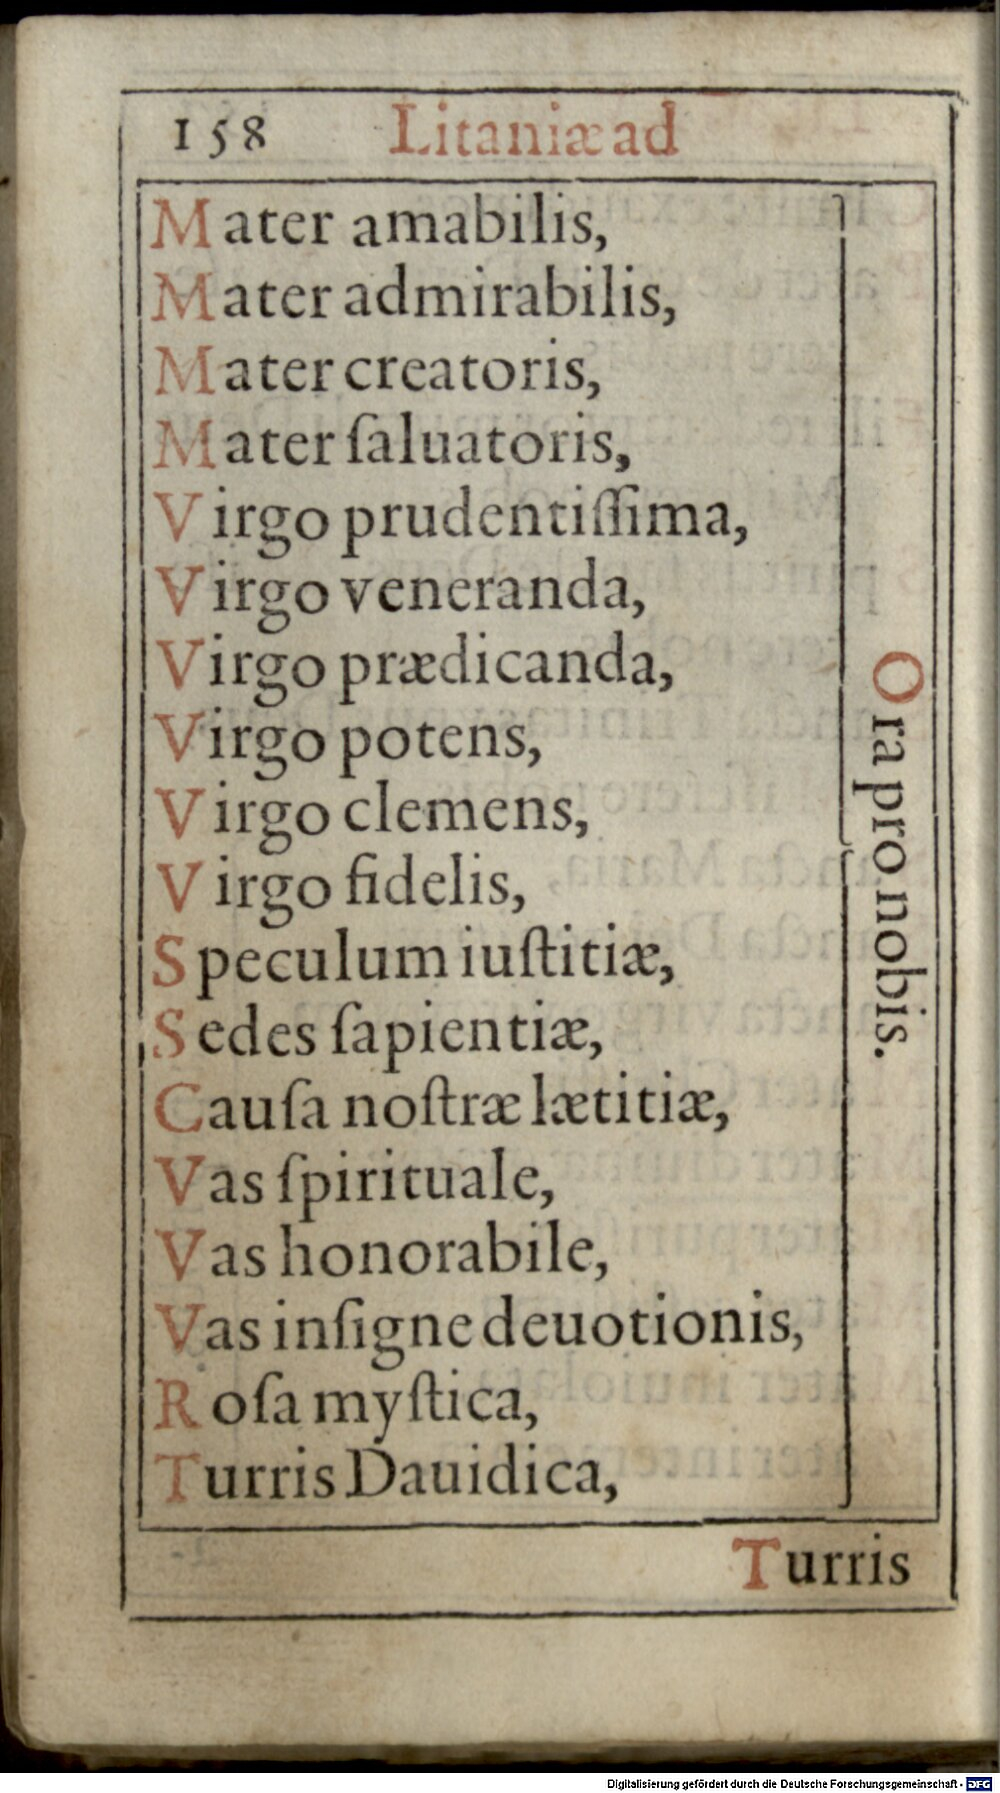 158 Litaniæ ad
Mater amabilis,
Mater admirabilis,
Mater creatoris,
Mater ſaluatoris,
Virgo prudentiſſima,
Virgo veneranda,
Virgo prædicanda,
Virgo potens,
Virgo clemens,
Virgo fidelis,
Speculum iuſtitiæ,
Sedes ſapientiæ,
Cauſa noſtræ lætitiæ,
Vas ſpirituale,
Vas honorabile,
Vas inſigne deuotionis,
Roſa myſtica,
Turris Dauidica,
Ora pro nobis.
Turris
Digitalisierung gefördert durch die Deutsche Forschungsgemeinschaft - DFG